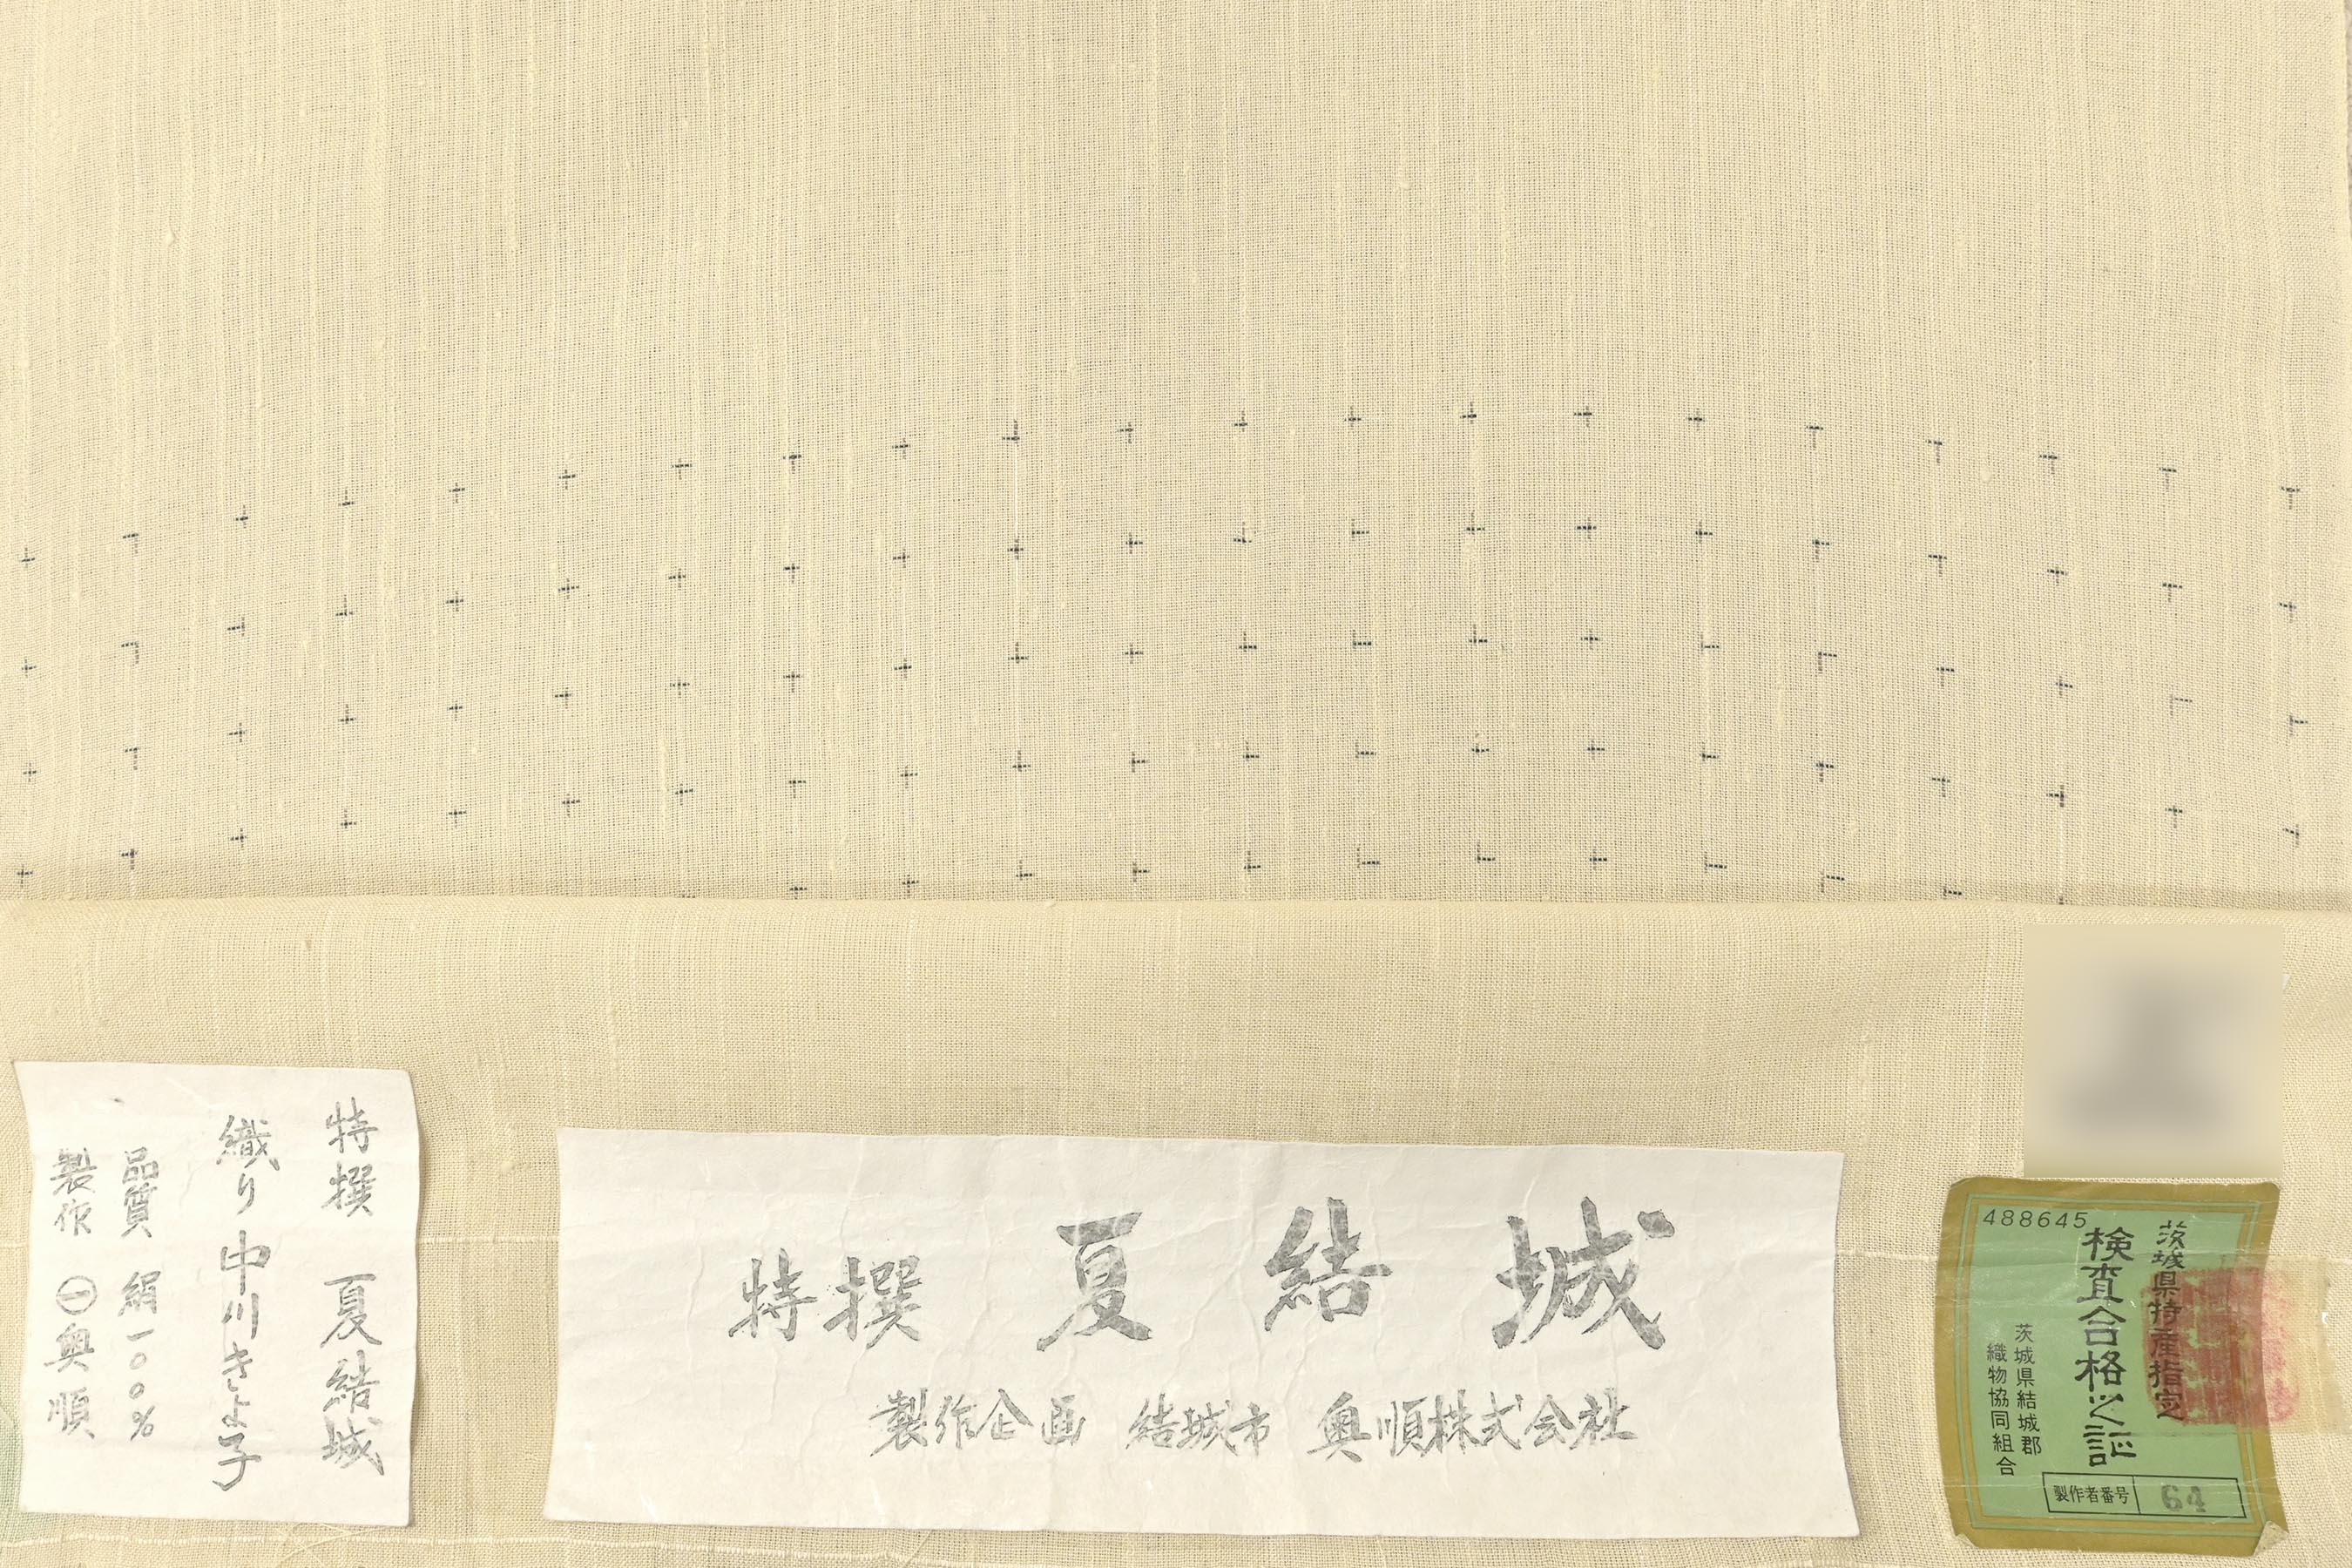 特撰 夏結城
織り 中川きよ子
品質 絹一〇〇%
製作 ㊀奥順
特撰 夏結城
製作企画 結城市 奥順株式会社
488645
茨城県特産指定
検査合格之証
茨城県結城郡
織物協同組合
製作者番号 64